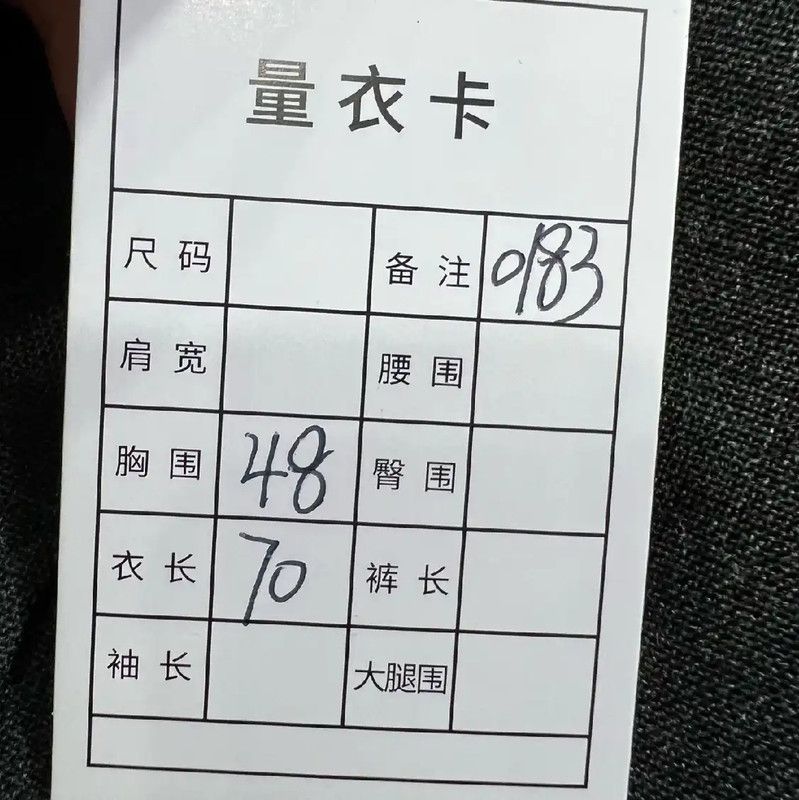 量衣卡
尺码 备注 0183
肩宽 腰围
胸围 48 臀围
衣长 70 裤长
袖长 大腿围